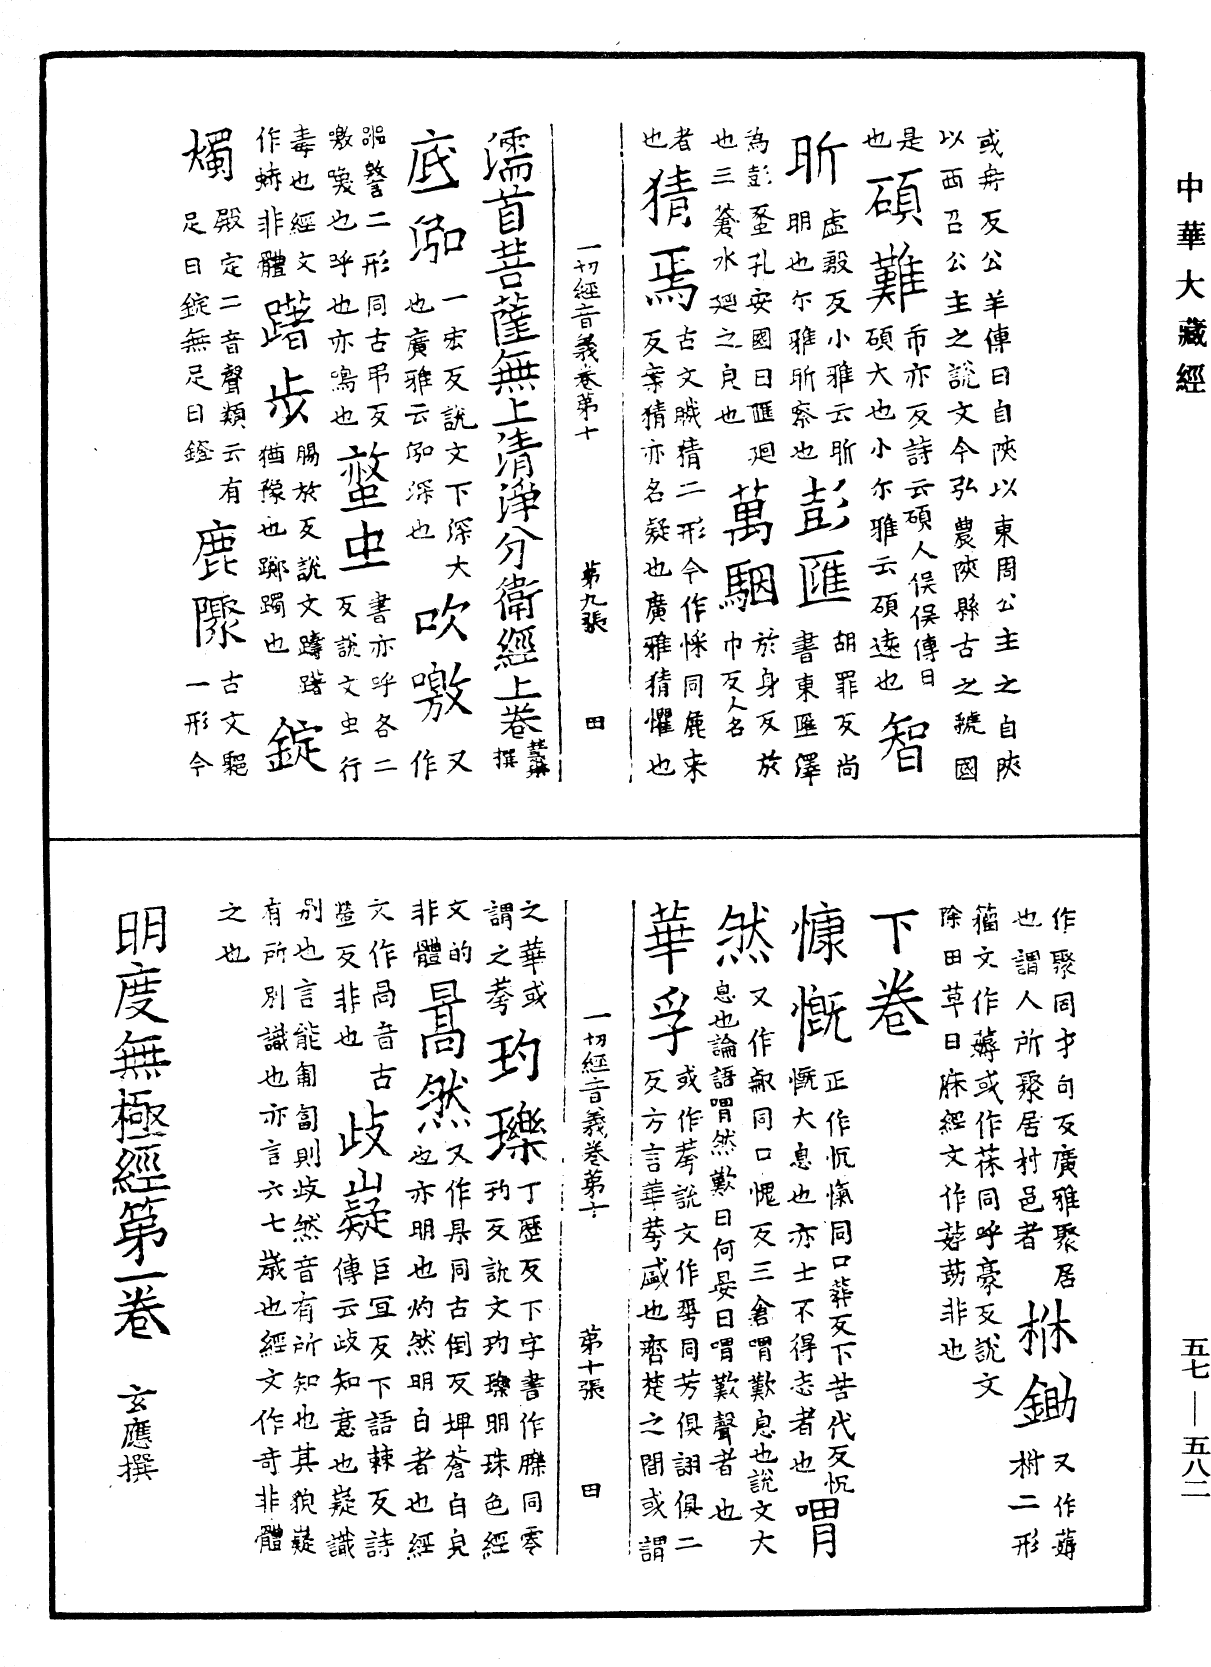 中華大藏經
或冉反公羊傳曰自陝以東周公主之自陝
以西召公主之說文今弘農陝縣古之虢國
是也 碩難 市亦反詩云碩人俁俁傳曰碩大也小尒雅云碩遠也 智
昕 虛殷反小雅云昕明也尒雅昕察也 彭匯 胡罪反尚書東匯澤
為彭蠡孔安國曰匯迴也三蒼水迴之皃也 萬駰 於身反於巾反人名
者也 猜焉 古文䑏猜二形今作㥒同麁来反案猜亦名疑也廣雅猜懼也
一切經音義卷第十 第九張 田
濡首菩薩無上清淨分衛經上卷 慧琳撰
底泓 一宏反說文下深大也廣雅云泓深也 吹噭 又作
詔警二形同古弔反噭噯也呼也亦鳴也 螫虫 書亦呼各二反說文虫行
毒也經文作蛴非體 躇步 腸於反說文躊躇猶豫也躑躅也 錠
燭 殿定二音聲類云有足曰錠無足曰鐙 鹿驟 古文䮛一形今
作聚同才句反廣雅聚居也謂人所聚居村邑者 㭒鋤 又作薅𣗋二形
籀文作薅或作茠同呼豪反說文除田草曰庥經文作䓤茘非也
下卷
慷慨 正作忼愾同口莽反下苦代反忼慨大息也亦士不得志者也 喟
然 又作㕟同口愧反三倉喟歎息也說文大息也論語喟然歎曰何晏曰喟歎聲者也
華孚 或作荂說文作𦾓同芳俱詡俱二反方言華荂盛也齊楚之間或謂
一切經音義卷第十 第十張 田
之華或謂之荂 玓瓅 丁歷反下字書作皪同零的反說文玓瓅明珠色經
文的非體 暠然 又作杲同古倒反埤蒼白皃也亦明也灼然明白者也經
文作暠音古螢反非也 歧嶷 巨宜反下語棘反詩傳云歧知意也嶷識
別也言能匍匐則歧然音有所知也其貌嶷有所別識也亦言六七歲也經文作奇非體
之也
明度無極經第一卷 玄應撰
五七—五八二